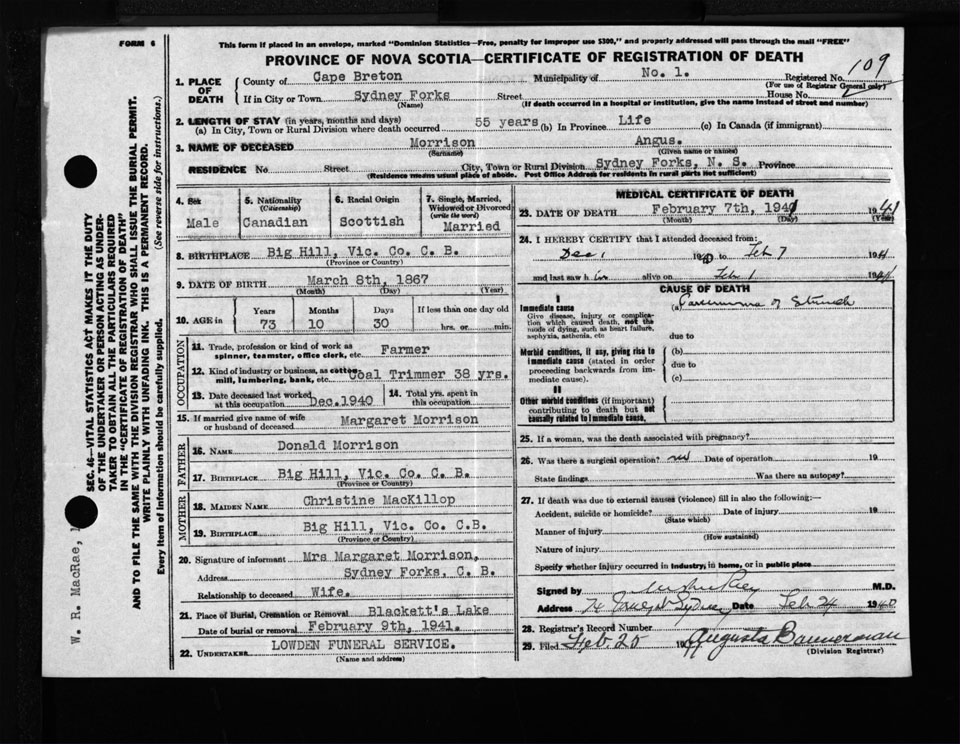 FORM 6
This form if placed in an envelope, marked "Dominion Statistics—Free, penalty for improper use $300," and properly addressed will pass through the mail "FREE"
PROVINCE OF NOVA SCOTIA—CERTIFICATE OF REGISTRATION OF DEATH
1. PLACE OF DEATH
County of Cape Breton Municipality of No. 1. Registered No. 109
(For use of Registrar General only)
If in City or Town Sydney Forks Street House No.
(Name) (If death occurred in a hospital or institution, give the name instead of street and number)
2. LENGTH OF STAY (in years, months and days)
(a) In City, Town or Rural Division where death occurred 55 years (b) In Province Life (c) In Canada (if immigrant)
3. NAME OF DECEASED Morrison Angus.
(Surname) (Given name or names)
RESIDENCE No. Street City, Town or Rural Division Sydney Forks, N. S. Province
(Residence means usual place of abode. Post Office Address for residents in rural parts not sufficient)
4. Sex
Male
5. Nationality
(Citizenship)
Canadian
6. Racial Origin
Scottish
7. Single, Married, Widowed or Divorced
(write the word)
Married
8. BIRTHPLACE Big Hill, Vic. Co. C. B.
(Province or Country)
9. DATE OF BIRTH March 8th, 1867
(Month) (Day) (Year)
10. AGE in
Years Months Days If less than one day old
73 10 30 hrs. or min.
OCCUPATION
11. Trade, profession or kind of work as spinner, teamster, office clerk, etc. Farmer
12. Kind of industry or business, as cotton mill, lumbering, bank, etc. Coal Trimmer 38 yrs.
13. Date deceased last worked at this occupation Dec. 1940
14. Total yrs. spent in this occupation
15. If married give name of wife or husband of deceased Margaret Morrison
FATHER
16. NAME Donald Morrison
17. BIRTHPLACE Big Hill, Vic. Co. C. B.
(Province or Country)
MOTHER
18. MAIDEN NAME Christine MacKillop
19. BIRTHPLACE Big Hill, Vic. Co. C.B.
(Province or Country)
20. Signature of informant Mrs Margaret Morrison,
Address Sydney Forks, C. B.
Relationship to deceased Wife.
21. Place of Burial, Cremation or Removal Blackett's Lake
Date of burial or removal February 9th, 1941.
22. UNDERTAKER LOWDEN FUNERAL SERVICE.
(Name and address)
MEDICAL CERTIFICATE OF DEATH
23. DATE OF DEATH February 7th, 1941 1941
(Month) (Day) (Year)
24. I HEREBY CERTIFY that I attended deceased from:
Dec 1 1940 to Feb 7 1941
and last saw h im alive on Feb 1 1941
CAUSE OF DEATH
I
Immediate cause
Give disease, injury or complication which caused death, not the mode of dying, such as heart failure, asphyxia, asthenia, etc
(a) of Stomach
due to
Morbid conditions, if any, giving rise to immediate cause (stated in order proceeding backwards from immediate cause).
(b)
due to
(c)
II
Other morbid conditions (if important) contributing to death but not causally related to immediate cause.
25. If a woman, was the death associated with pregnancy?
26. Was there a surgical operation? no Date of operation 19
State findings Was there an autopsy?
27. If death was due to external causes (violence) fill in also the following:—
Accident, suicide or homicide? Date of injury 19
(State which)
Manner of injury
(How sustained)
Nature of injury
Specify whether injury occurred in industry, in home, or in public place
Signed by M.D.
Address Sydney Date Feb 24 1940
28. Registrar's Record Number
29. Filed Feb. 25 19 Augusta Bannerman
(Division Registrar)
SEC. 46—VITAL STATISTICS ACT MAKES IT THE DUTY
OF THE UNDERTAKER OR PERSON ACTING AS UNDER-
TAKER TO OBTAIN ALL THE PARTICULARS REQUIRED
IN THE "CERTIFICATE OF REGISTRATION OF DEATH"
AND TO FILE THE SAME WITH THE DIVISION REGISTRAR WHO SHALL ISSUE THE BURIAL PERMIT.
WRITE PLAINLY WITH UNFADING INK. THIS IS A PERMANENT RECORD.
Every item of information should be carefully supplied. (See reverse side for instructions.)
W. R. MacRae,